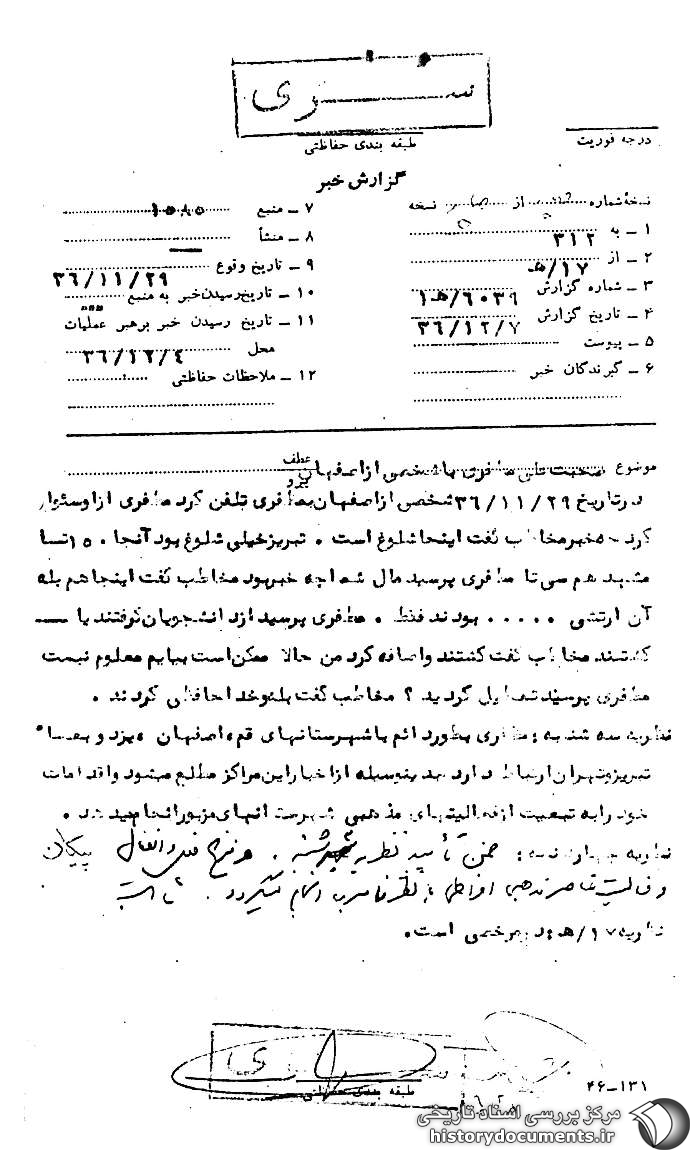 سری
طبقه بندی حفاظتی
درجه فوریت
گزارش خبر
نسخهٔ شماره از نسخه
۱ ـ به ۳۱۲
۲ ـ از ۱۷/هـ
۳ ـ شماره گزارش ۶۰۳۹/هـ۱
۴ ـ تاریخ گزارش ۳۶/۱۲/۷
۵ ـ پیوست
۶ ـ گیرندگان خبر
۷ ـ منبع ۱۵۸۰
۸ ـ منشأ
۹ ـ تاریخ وقوع ۳۶/۱۱/۲۹
۱۰ ـ تاریخ رسیدن خبر به منبع
۱۱ ـ تاریخ رسیدن خبر برهبر عملیات
محل ۳۶/۱۲/۴
۱۲ ـ ملاحظات حفاظتی
موضوع صحبت تلفنی مظفری با شخصی از اصفهان
عطف
پیرو
در تاریخ ۳۶/۱۱/۲۹ شخصی از اصفهان بمظفری تلفن کرد مظفری از او سئوال
کرد چه خبر مخاطب گفت اینجا شلوغ است ۰ تبریز خیلی شلوغ بود آنجا ۱۵۰ تا
مشهد هم سی تا مظفری پرسید مال شما چه خبر بود مخاطب گفت اینجا هم بله
آن ارتشی ۰۰۰۰۰ بودند فقط ۰ مظفری پرسید از دانشجویان گرفتند یا
کشتند مخاطب گفت کشتند و اضافه کرد من حالا ممکن است بیایم معلوم نیست
مظفری پرسید تعطیل کردید ؟ مخاطب گفت بله و خداحافظی کردند ۰
نظریه سه شنبه : مظفری بطور دائم با شهرستانهای قم، اصفهان ، یزد و بعضاً
تبریز و تهران ارتباط دارد بدینوسیله از اخبار این مراکز مطلع میشود و اقدامات
خود را به تبعیت از فعالیتهای مذهبی شهرستانهای مزبور انجام میدهد ۰
نظریه چهارشنبه : ضمن تأیید نظریه شنبه ۰
و فعالیت عناصر مذهبی افراطی
نظریه ۱۷/هـ :
است.
سری
طبقه بندی حفاظتی
۴۶-۱۳۱
مرکز بررسی اسناد تاریخی
historydocuments.ir